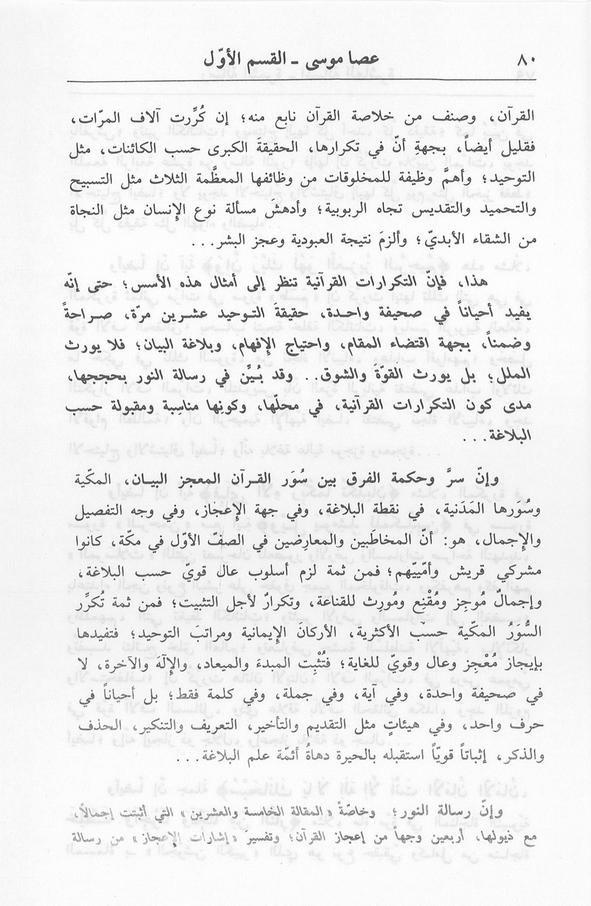 ٨٠
عصا موسى ـ القسم الأوّل
القرآن، وصنف من خلاصة القرآن نابع منه؛ إن كُرِّرت آلاف المرّات،
فقليل أيضاً، بجهةِ أنّ في تكرارها، الحقيقةَ الكبرى حسب الكائنات، مثل
التوحيد؛ وأهمَّ وظيفة للمخلوقات من وظائفها المعظَّمة الثلاث مثل التسبيح
والتحميد والتقديس تجاه الربوبية؛ وأدهشَ مسألة نوع الإنسان مثل النجاة
من الشقاء الأبديّ؛ وألزمَ نتيجة العبودية وعجز البشر...
هذا، فإنّ التكرارات القرآنية تنظر إلى أمثال هذه الأسس؛ حتى إنّه
يفيد أحياناً في صحيفة واحدة، حقيقة التوحيد عشرين مرّة، صراحةً
وضمناً، بجهة اقتضاء المقام، واحتياج الإفهام، وبلاغة البيان؛ فلا يورث
الملل؛ بل يورث القوّة والشوق.. وقد بُيِّن في رسالة النور بحججها،
مدى كون التكرارات القرآنية، في محلّها، وكونها مناسِبة ومقبولة حسب
البلاغة...
وإنّ سرَّ وحكمة الفرق بين سُوَر القرآن المعجز البيان، المكّية
وسُوَرها المَدَنية، في نقطة البلاغة، وفي جهة الإعجاز، وفي وجه التفصيل
والإجمال، هو: أنّ المخاطَبين والمعارِضين في الصفّ الأوّل في مكّة، كانوا
مشركي قريش وأمّييهم؛ فمن ثمة لزم أسلوب عال قويّ حسب البلاغة،
وإجمالٌ مُوجِز ومُقْنِع ومُورِث للقناعة، وتكرارٌ لأجل التثبيت؛ فمن ثمة تُكرِّر
السُّوَرُ المكّية حسب الأكثرية، الأركانَ الإيمانية ومراتبَ التوحيد؛ فتفيدها
بإيجاز مُعْجِز وعال وقويّ للغاية؛ فتُثْبِت المبدءَ والميعاد، والإلَهَ والآخرة، لا
في صحيفة واحدة، وفي آية، وفي جملة، وفي كلمة فقط؛ بل أحياناً في
حرف واحد، وفي هيئاتٍ مثل التقديم والتأخير، التعريف والتنكير، الحذف
والذكر، إثباتاً قويّاً استقبله بالحيرة دهاةُ أئمّة علم البلاغة...
وإنّ رسالة النور؛ وخاصّةً «المقالة الخامسة والعشرين» التي أثبتت إجمالاً،
مع ذيولها، أربعين وجهاً من إعجاز القرآن؛ وتفسيرَ «إشارات الإعجاز» من رسالة